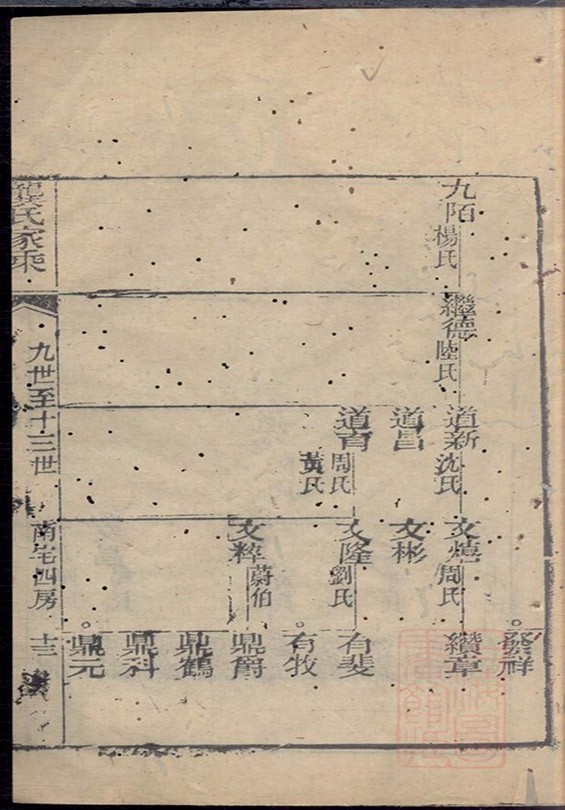 九陌 楊氏
繼德 陸氏
道新 沈氏
道昌
道育 周氏 黃氏
文燒 周氏
文彬
文隆 劉氏
文粹 蔚伯
發祥
纘章
有斐
有牧
鼎爵
鼎鶴
鼎科
鼎元
龔氏家乘
九世至十三世
南宅四房
十三